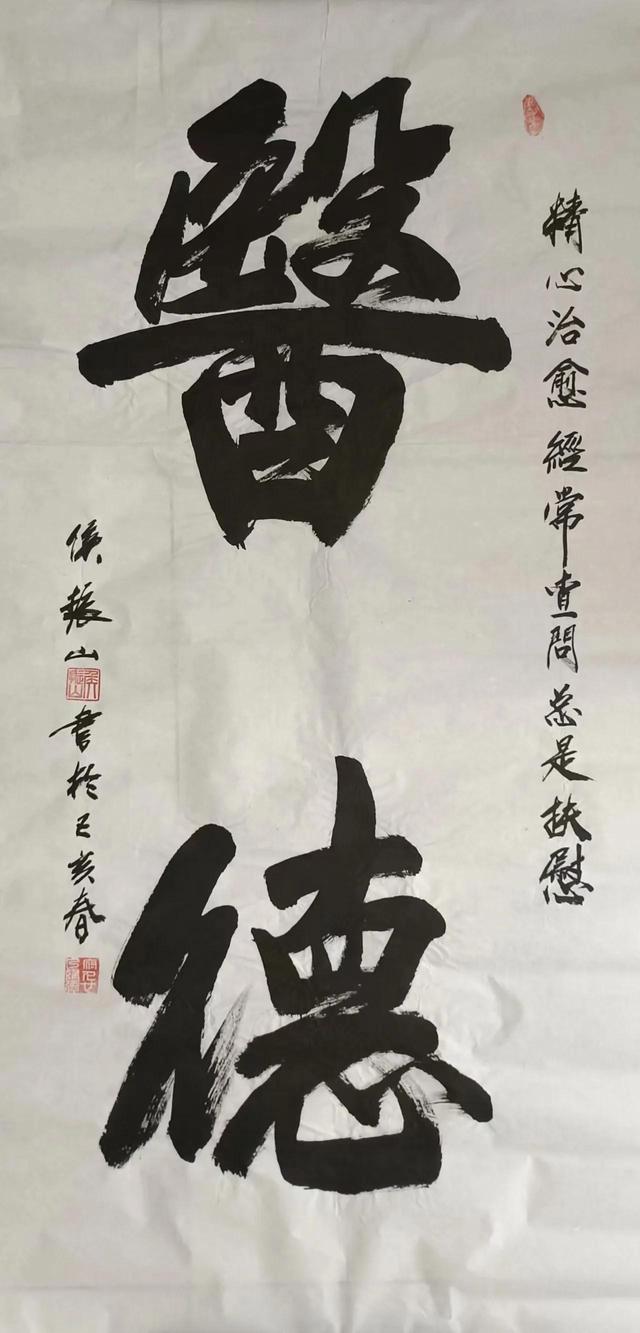 精心治愈經常查問总是扶慰
醫德
侯振山書於己亥春